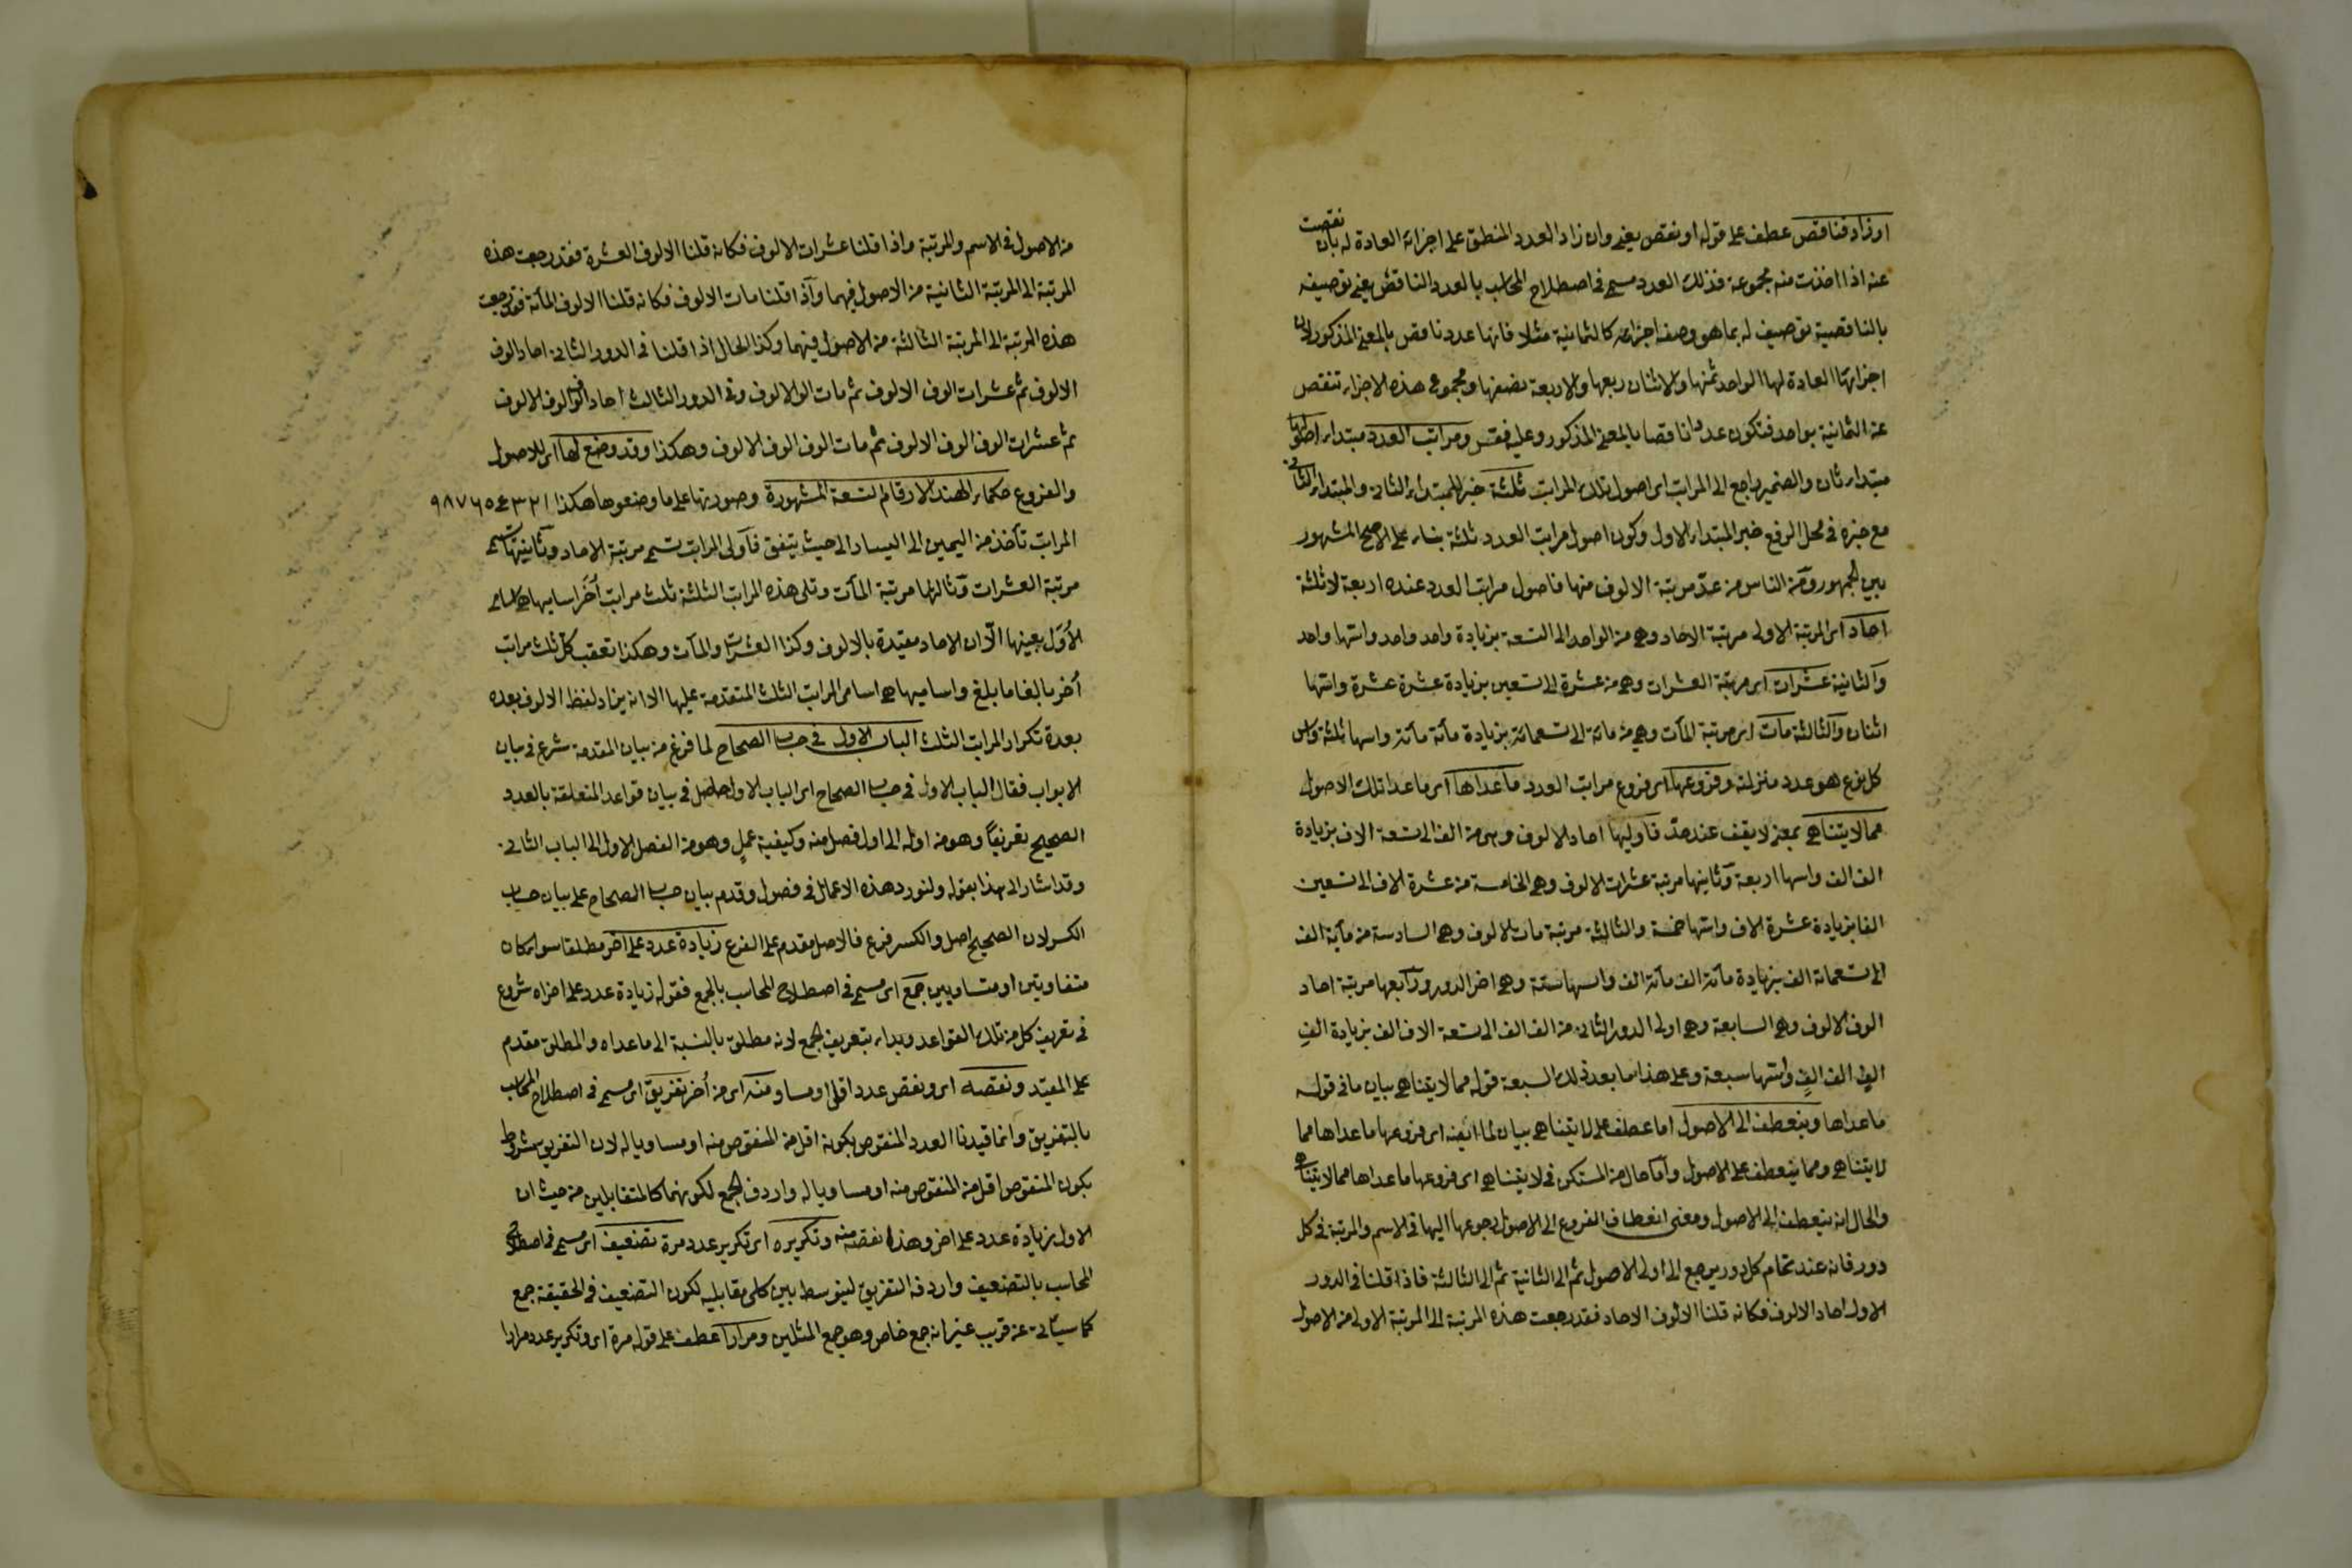 او زاد فناقص عطف على قوله او نقص يعني وان زاد العدد المنطق على اجزائه العادة له بان نقصت
عنه اذا اخذت منه مجموعة فذلك العدد مسمى في اصطلاح المحاسب بالعدد الناقص يعني توصيفه
بالناقصية توصيف له بما هو وصف اجزائه كالثمانية مثلا فانها عدد ناقص بالمعنى المذكور لان
اجزائها العادة لها الواحد ثمنها والاثنان ربعها والاربعة نصفها ومجموع هذه الاجزاء تنقص
عن الثمانية بواحد فتكون عددا ناقصا بالمعنى المذكور وعليه فقس ومراتب العدد مبتداء اصولها
مبتداء ثان والضمير راجع الى المراتب اى اصول تلك المراتب ثلثة خبر للمبتداء الثانى والمبتداء الثانى
مع خبره في محل الرفع خبر المبتداء الاول وكون اصول مراتب العدد ثلثة بناء على الاصح المشهور
بين الجمهور ومن الناس من عدّ مرتبة الالوف منها فاصول مراتب العدد عنده اربعة لا ثلثة
احاد اى المرتبة الاولى مرتبة الاحاد وهي من الواحد الى التسعة بزيادة واحد واحد واسها واحد
والثانية عشرات اى مرتبة العشرات وهي من عشرة الى تسعين بزيادة عشرة عشرة واسها
اثنان والثالثة مآت اى مرتبة المآت وهي من مائة الى تسعمائة بزيادة مأئة مأئة واسها ثلثة واس
كل نوع هو عدد منزلته وفروعها اى فروع مراتب العدد ما عداها اى ما عدا تلك الاصول
مما لا يتناهى بمعنى لا يقف عند حدّ فاوليها احاد الالوف وهي من الف الى تسعة الاف بزيادة
الف الف واسها اربعة وثانيها مرتبة عشرات الالوف وهي الخامسة من عشرة الاف الى تسعين
الفا بزيادة عشرة الاف واسها خمسة والثالثة مرتبة مات الالوف وهي السادسة من مأية الف
الى تسعمائة الف بزيادة مأئة الف مأئة الف واسها ستة وهي اخر الدور ورابعها مرتبة احاد
الوف الالوف وهي السابعة وهي اولى الدور الثانى من الف الف الى تسعة الاف الف بزيادة الفِ
الفٍ الف الفٍ واسها سبعة وعلى هذا ما بعد تلك السبعة قوله مما لا يتناهى بيان ما في قوله
ما عداها وينعطف الى الاصول اما عطف على لا يتناهى بيان لما ايضا اى فروعها ما عداها مما
لا يتناهى ومما ينعطف على الاصول واما حال من المستكن في لا يتناهى اى فروعها ما عداها مما لا يتناهى
والحال انه ينعطف الى الاصول ومعنى انعطاف الفروع الى الاصول رجوعها اليها في الاسم والمرتبة في كل
دور فانه عند تمام كل دور يرجع الى اولى الاصول ثم الى الثانية ثم الى الثالثة فاذا قلنا في الدور
الاول احاد الالوف فكانه قلنا الالوف الاحاد فقد رجعت هذه المرتبة الى المرتبة الاولى من الاصول
من الاصول في الاسم والمرتبة واذا قلنا عشرات الالوف فكانه قلنا الالوف العشرة فقد رجعت هذه
المرتبة الى المرتبة الثانية من الاصول فيهما واذا قلنا مات الالوف فكانه قلنا الالوف المأئة فقد رجعت
هذه المرتبة الى المرتبة الثالثة من الاصول فيهما وكذا الحال اذا قلنا في الدور الثانى احاد الوف
الالوف ثم عشرات الوف الالوف ثم مات الوف الالوف وفي الدور الثالث احاد الوف الوف الالوف
ثم عشرات الوف الوف الالوف ثم مات الوف الوف الالوف وهكذا وقد وضع لها اى للاصول
والفروع حكماء الهند الارقام التسعة المشهورة وصورتها على ما وضعوها هكذا ١ ٢ ٣ ٤ ٥ ٦ ٧ ٨ ٩
المراتب تأخذ من اليمين الى اليسار الى حيث يتفق فاولى المراتب تسمى مرتبة الاحاد وثانيتها تسمى
مرتبة العشرات وثالثها مرتبة المآت وتلى هذه المراتب الثلثة ثلث مراتب اُخَر اساميها هي اسامى
الاُوَل بعينها الّا ان الاحاد مقيدة بالالوف وكذا العشرات والمآت وهكذا تعقب كل ثلث مراتب
اُخر بالغا ما بلغ واساميها هي اسامى المراتب الثلث المتقدمة عليها الا انه يزاد لفظ الالوف بعده
بعدة تكرار المراتب الثلث الباب الاول في حساب الصحاح لما فرغ من بيان المقدمة شرع في بيان
الابواب فقال الباب الاول في حساب الصحاح اى الباب الاول حاصل في بيان قواعد المتعلقة بالعدد
الصحيح تعريفاً وهو من اوله الى اول فصل منه وكيفية عملٍ وهو من الفصل الاول الى الباب الثانى
وقد اشار الى هذا بقوله ولنورد هذه الاعمال في فصول وقدم بيان حساب الصحاح على بيان حساب
الكسر لان الصحيح اصل والكسر فرع فالاصل مقدم على الفرع زيادة عدد على اخر مطلقا سواء كان
متفاوتين او متساويين جمع اى مسمى في اصطلاح المحاسب بالجمع فقوله زيادة عدد على اخر اه شروع
في تعريف كل من تلك القواعد وبداء بتعريف الجمع لانه مطلق بالنسبة الى ما عداه والمطلق مقدم
على المقيّد ونقصه اى ونقص عدد اقل او مساو منه اى من اُخر تفريق اى مسمى في اصطلاح المحاسب
بالتفريق وانما قيدنا العدد المنقوص بكونه اقل من المنقوص منه او مساويا له لان التفريق مشروط
بكون المنقوص اقل من المنقوص منه او مساويا له واردف الجمع لكونهما كالمتقابلين من حيث ان
الاول زيادة عدد على اخر وهذا نقصه منه وتكريره اى تكرير عدد مرة تضعيف اى مسمى في اصطلاح
المحاسب بالتضعيف واردفه التفريق ليتوسط بين كلى مقابليه لكون التضعيف في الحقيقة جمع
كما سيأتى عن قريب غير انه جمع خاص وهو جمع المثلين ومرارا عطف على قوله مرة اى وتكرير عدد مرارا